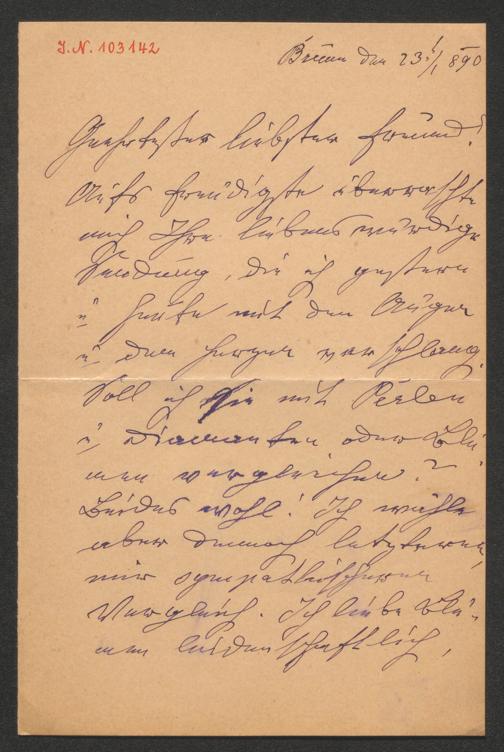 I.N. 103142
Brünn den 23/1 890
Geehrtester liebster Freund!
Aufs freudigste überraschte
mich Ihre liebenswürdige
Sendung, die ich gestern
u heute mit den Augen
u. dem Herzen verschlang.
Soll ich sie mit Perlen
u. Diamanten oder Blu-
men vergleichen?
Beides wohl! Ich wähle
aber dennoch letzteren,
mir sympatischeren
Vergleich. Ich liebe Blu-
men leidenschaftlich,